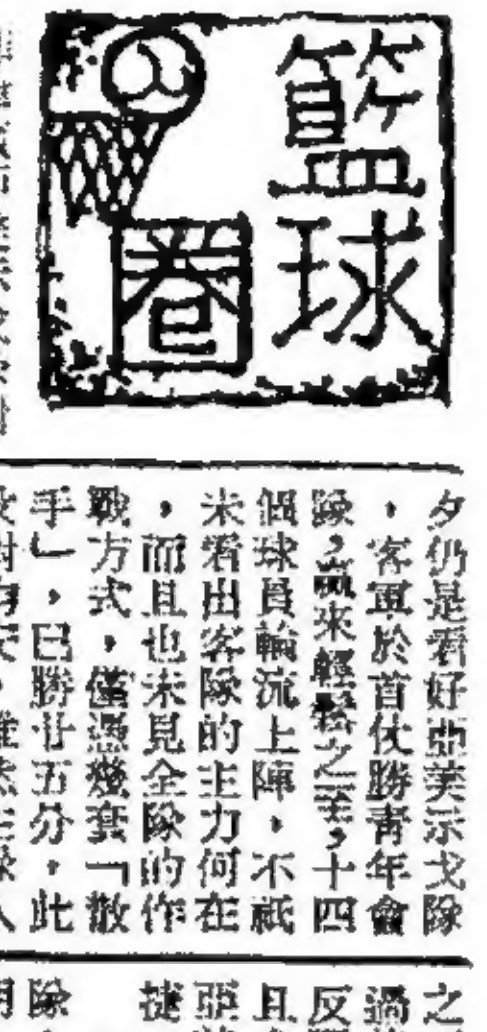 籃球
圈
夕仍是看好亞美示戈隊
，客軍於首仗勝青年會
隊，贏來輕鬆之至，十四
個球員輪流上陣，不祇
未看出客隊的主力何在
，而且也未見全隊的作
戰方式，僅憑幾套「散
手」，已勝廿五分，此
之
過
反
且
亞
捷
除